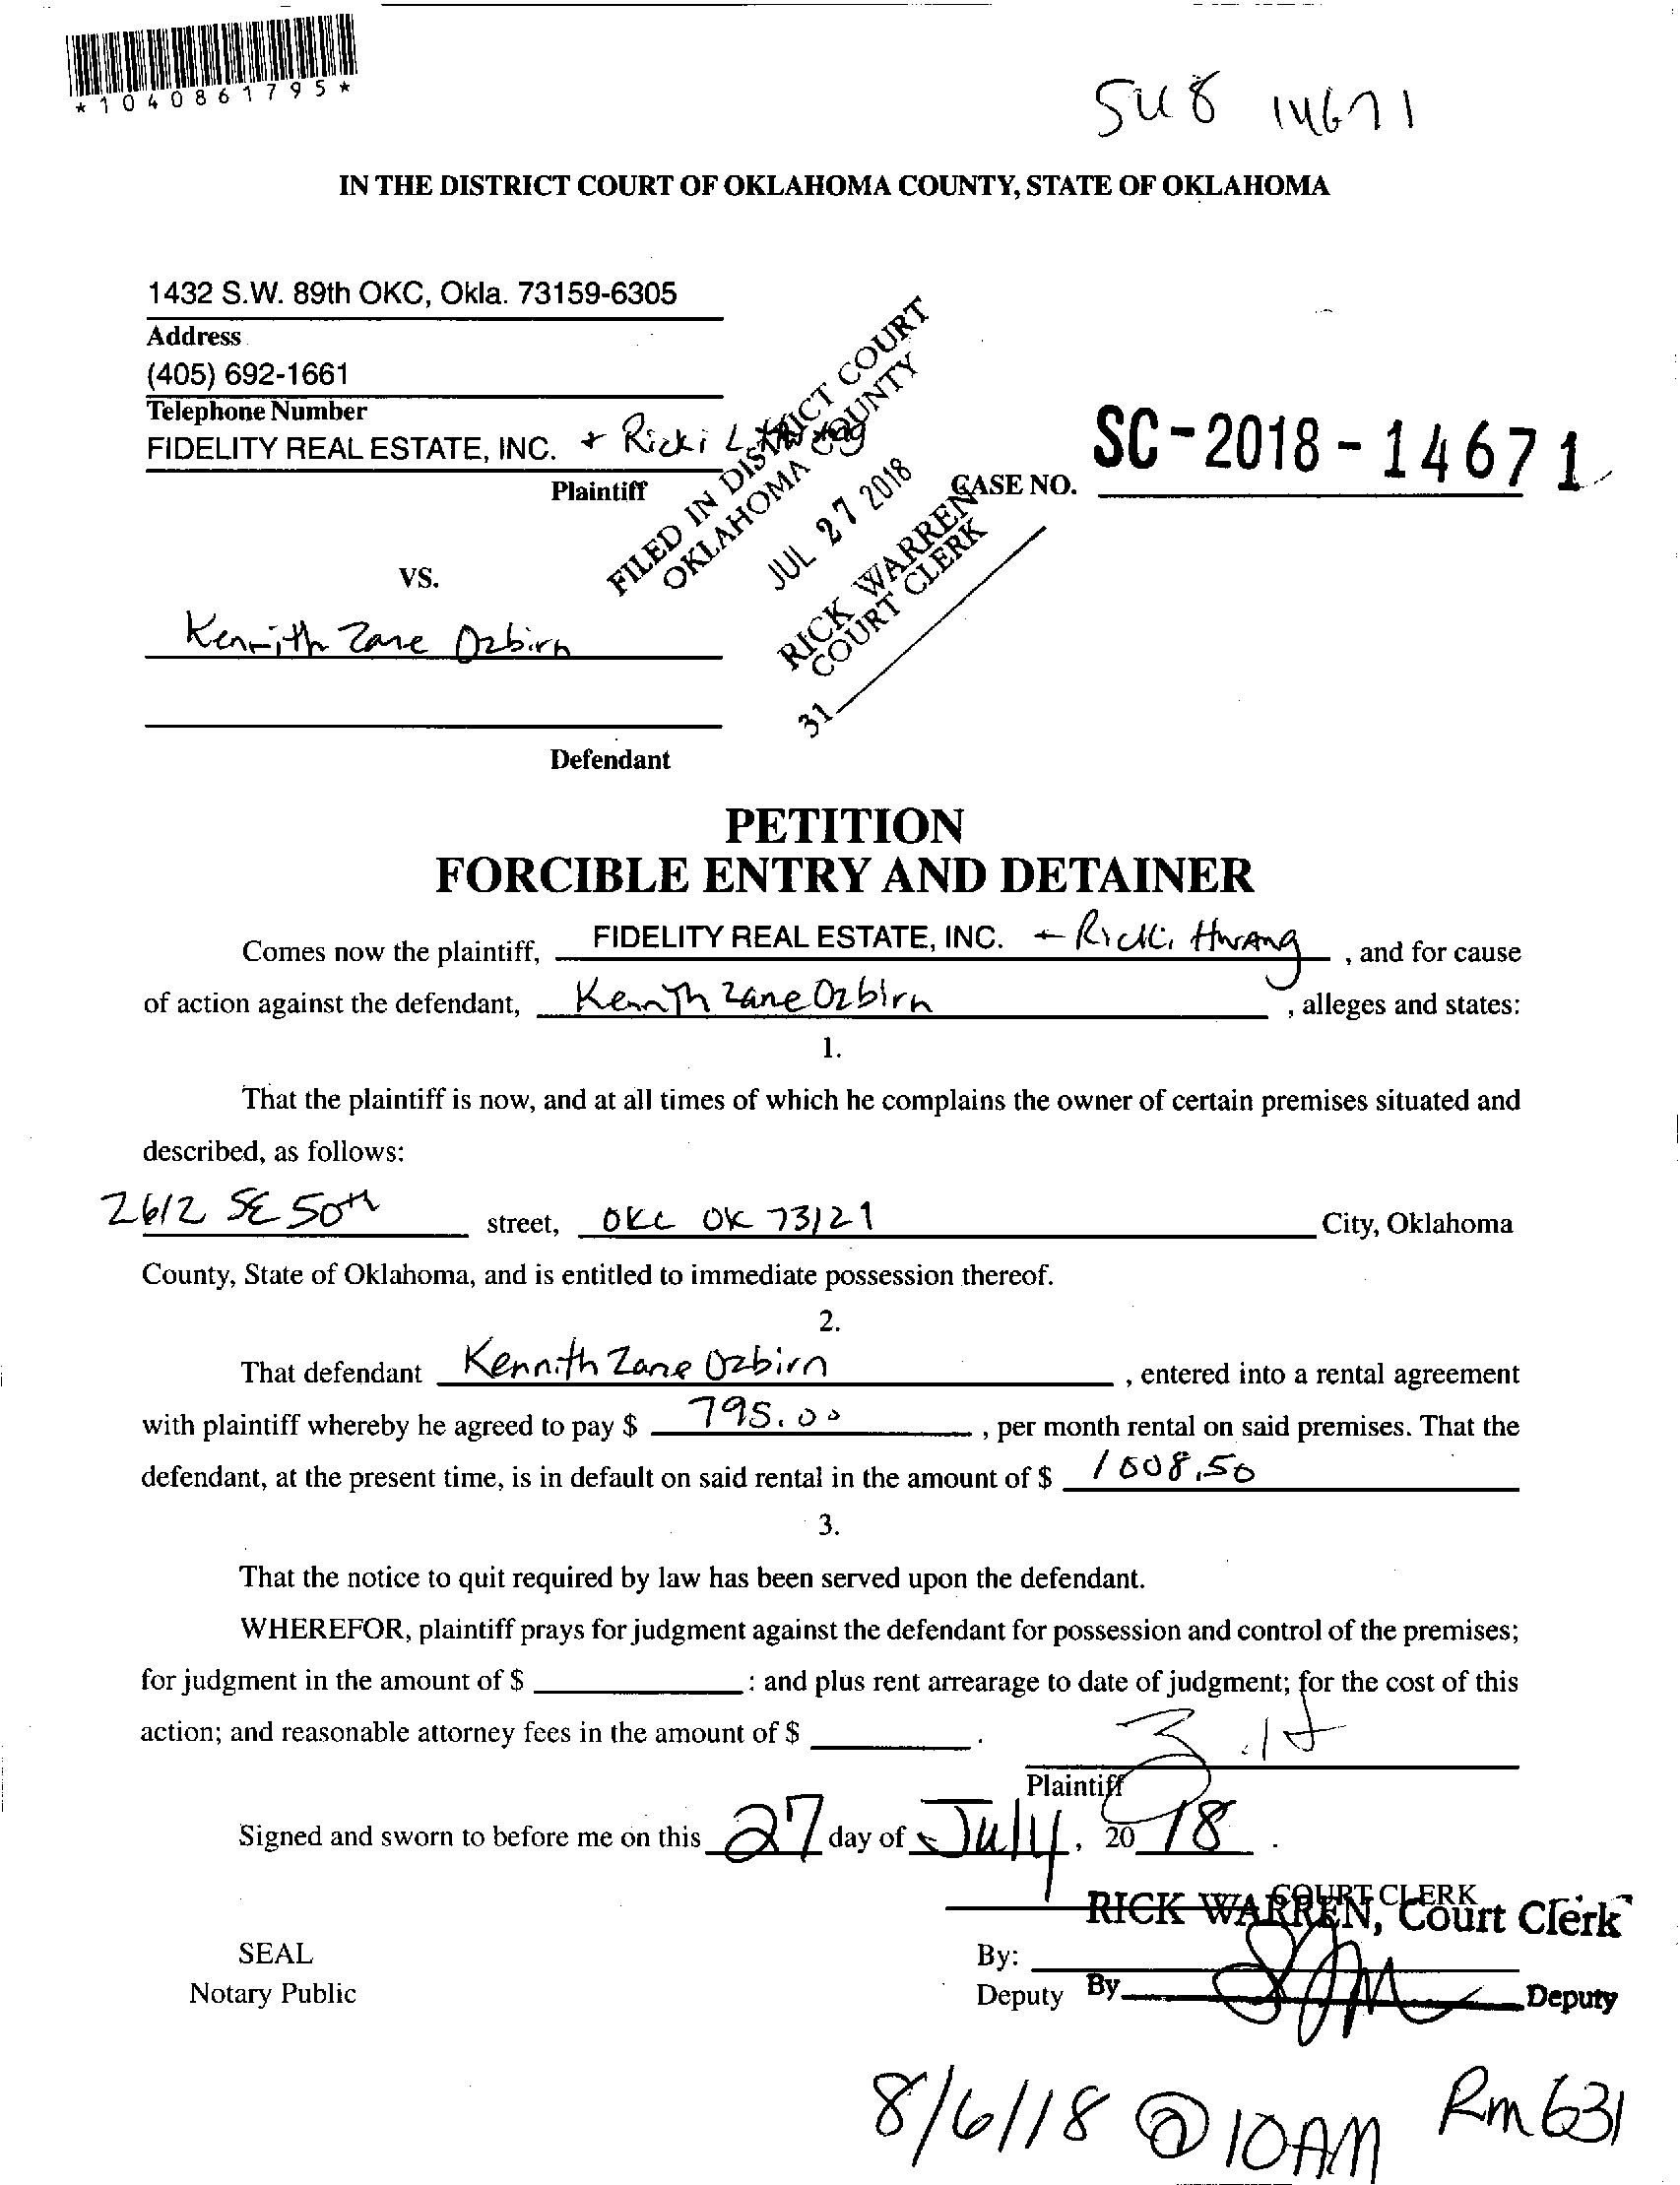 *1040861795*
SU8 14671
IN THE DISTRICT COURT OF OKLAHOMA COUNTY, STATE OF OKLAHOMA
1432 S.W. 89th OKC, Okla. 73159-6305
Address
(405) 692-1661
Telephone Number
FIDELITY REAL ESTATE, INC. + Ricki
Plaintiff
FILED IN DISTRICT COURT
OKLAHOMA COUNTY
JUL 27 2018
RICK WARREN
COURT CLERK
31
CASE NO. SC-2018-14671
VS.
Kennith Zane Ozbirn
Defendant
PETITION
FORCIBLE ENTRY AND DETAINER
Comes now the plaintiff, FIDELITY REAL ESTATE, INC. + Ricki Hwang, and for cause
of action against the defendant, Kennth Zane Ozbirn, alleges and states:
1.
That the plaintiff is now, and at all times of which he complains the owner of certain premises situated and
described, as follows:
2612 SE 50th street, OKC OK 73129 City, Oklahoma
County, State of Oklahoma, and is entitled to immediate possession thereof.
2.
That defendant Kennith Zane Ozbirn, entered into a rental agreement
with plaintiff whereby he agreed to pay $ 795.00, per month rental on said premises. That the
defendant, at the present time, is in default on said rental in the amount of $
3.
That the notice to quit required by law has been served upon the defendant.
WHEREFOR, plaintiff prays for judgment against the defendant for possession and control of the premises;
for judgment in the amount of $ ____________: and plus rent arrearage to date of judgment; for the cost of this
action; and reasonable attorney fees in the amount of $ ____________.
Plaintiff
Signed and sworn to before me on this 27 day of July, 20 18.
COURT CLERK
RICK WARREN, Court Clerk
SEAL
By:
Notary Public
Deputy
By Deputy
8/6/18 @ 10AM Rm 631